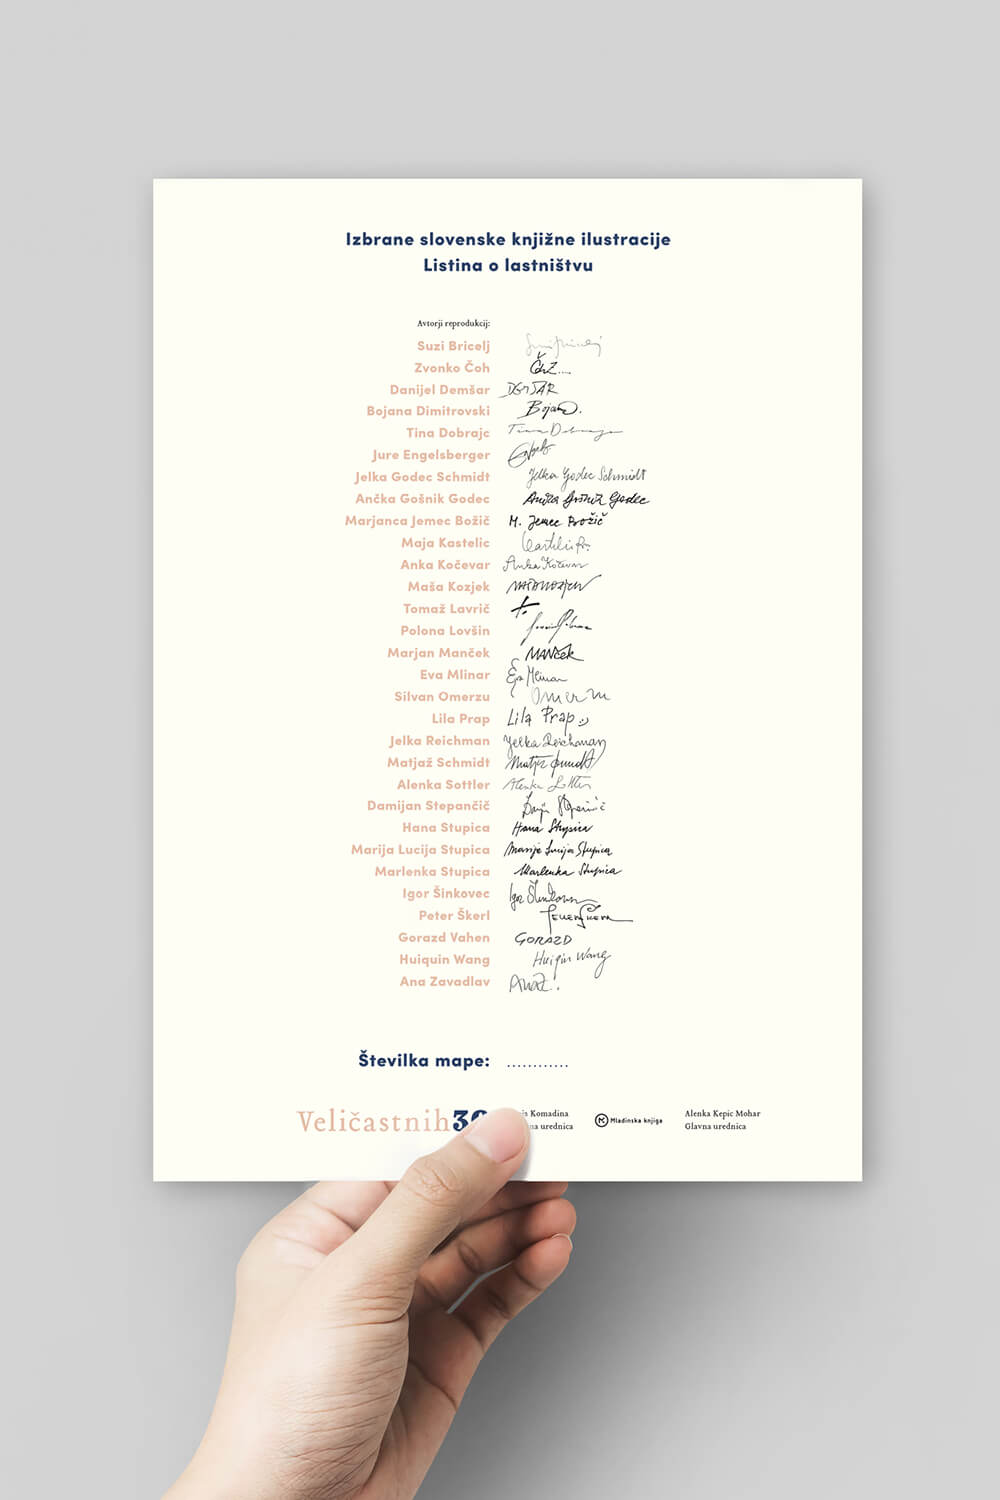 Izbrane slovenske knjižne ilustracije
Listina o lastništvu
Avtorji reprodukcij:
Suzi Bricelj
Zvonko Čoh
Danijel Demšar DEMŠAR
Bojana Dimitrovski Bojana D.
Tina Dobrajc Tina Dobrajc
Jure Engelsberger
Jelka Godec Schmidt Jelka Godec Schmidt
Ančka Gošnik Godec Ančka Gošnik Godec
Marjanca Jemec Božič M. Jemec Božič
Maja Kastelic
Anka Kočevar Anka Kočevar
Maša Kozjek
Tomaž Lavrič
Polona Lovšin
Marjan Manček MANček
Eva Mlinar Eva Mlinar
Silvan Omerzu
Lila Prap Lila Prap
Jelka Reichman Jelka Reichman
Matjaž Schmidt Matjaž Schmidt
Alenka Sottler Alenka Sottler
Damijan Stepančič
Hana Stupica Hana Stupica
Marija Lucija Stupica Marija Lucija Stupica
Marlenka Stupica Marlenka Stupica
Igor Šinkovec Igor Šinkovec
Peter Škerl Peter Škerl
Gorazd Vahen GORAZD
Huiquin Wang Huiqin Wang
Ana Zavadlav
Številka mape: ............
Veličastnih Komadina Mladinska knjiga Alenka Kepic Mohar
urednica Glavna urednica